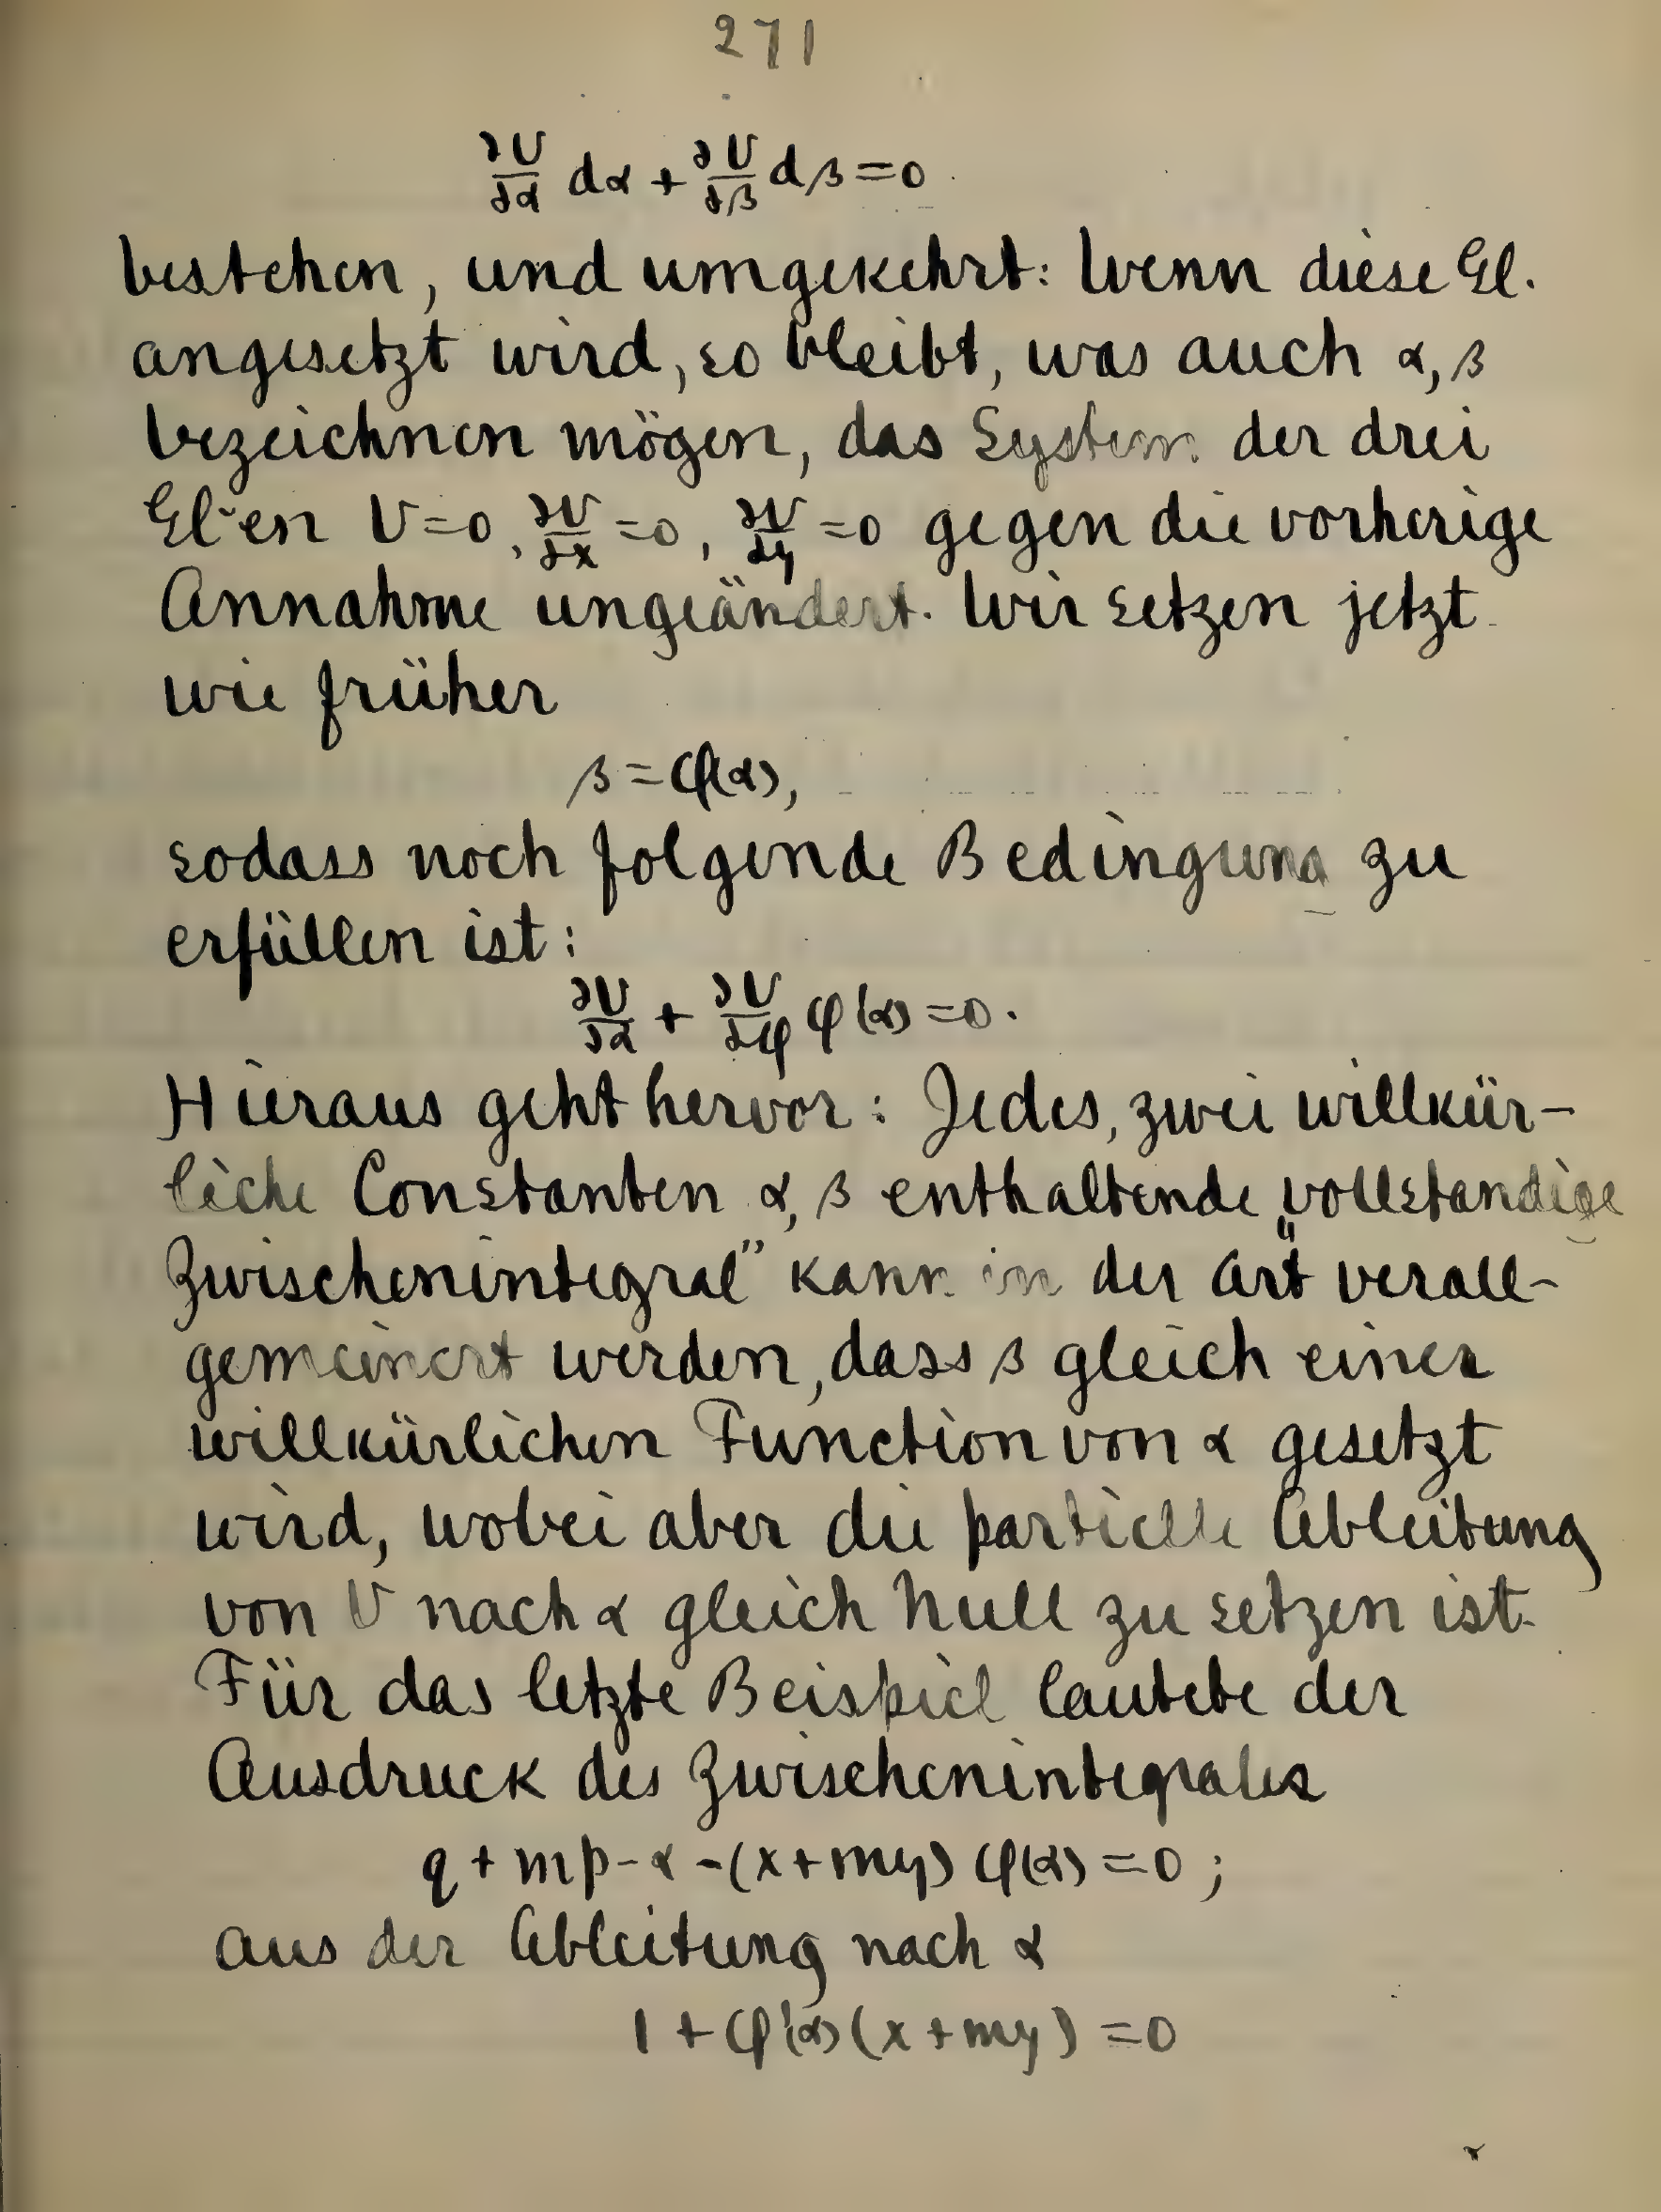 271
∂U/∂α dα + ∂U/∂β dβ = 0
bestehen, und umgekehrt: Wenn diese Gl.
angesetzt wird, so bleibt, was auch α, β
bezeichnen mögen, das System der drei
Gl-en U=0, ∂U/∂x =0, ∂U/∂y =0 gegen die vorherige
Annahme ungeändert. Wir setzen jetzt
wie früher
β = φ(α),
sodass noch folgende Bedingung zu
erfüllen ist:
∂U/∂α + ∂U/∂φ φ'(α) = 0.
Hieraus geht hervor: Jedes, zwei willkür-
liche Constanten α, β enthaltende „vollständige
Zwischenintegral" kann in der Art verall-
gemeinert werden, dass β gleich einer
willkürlichen Function von α gesetzt
wird, wobei aber die partielle Ableitung
von U nach α gleich Null zu setzen ist.
Für das letzte Beispiel lautete der
Ausdruck des Zwischenintegrales
q + mp - α - (x + my) φ(α) = 0;
aus der Ableitung nach α
1 + φ'(α) (x + my) = 0